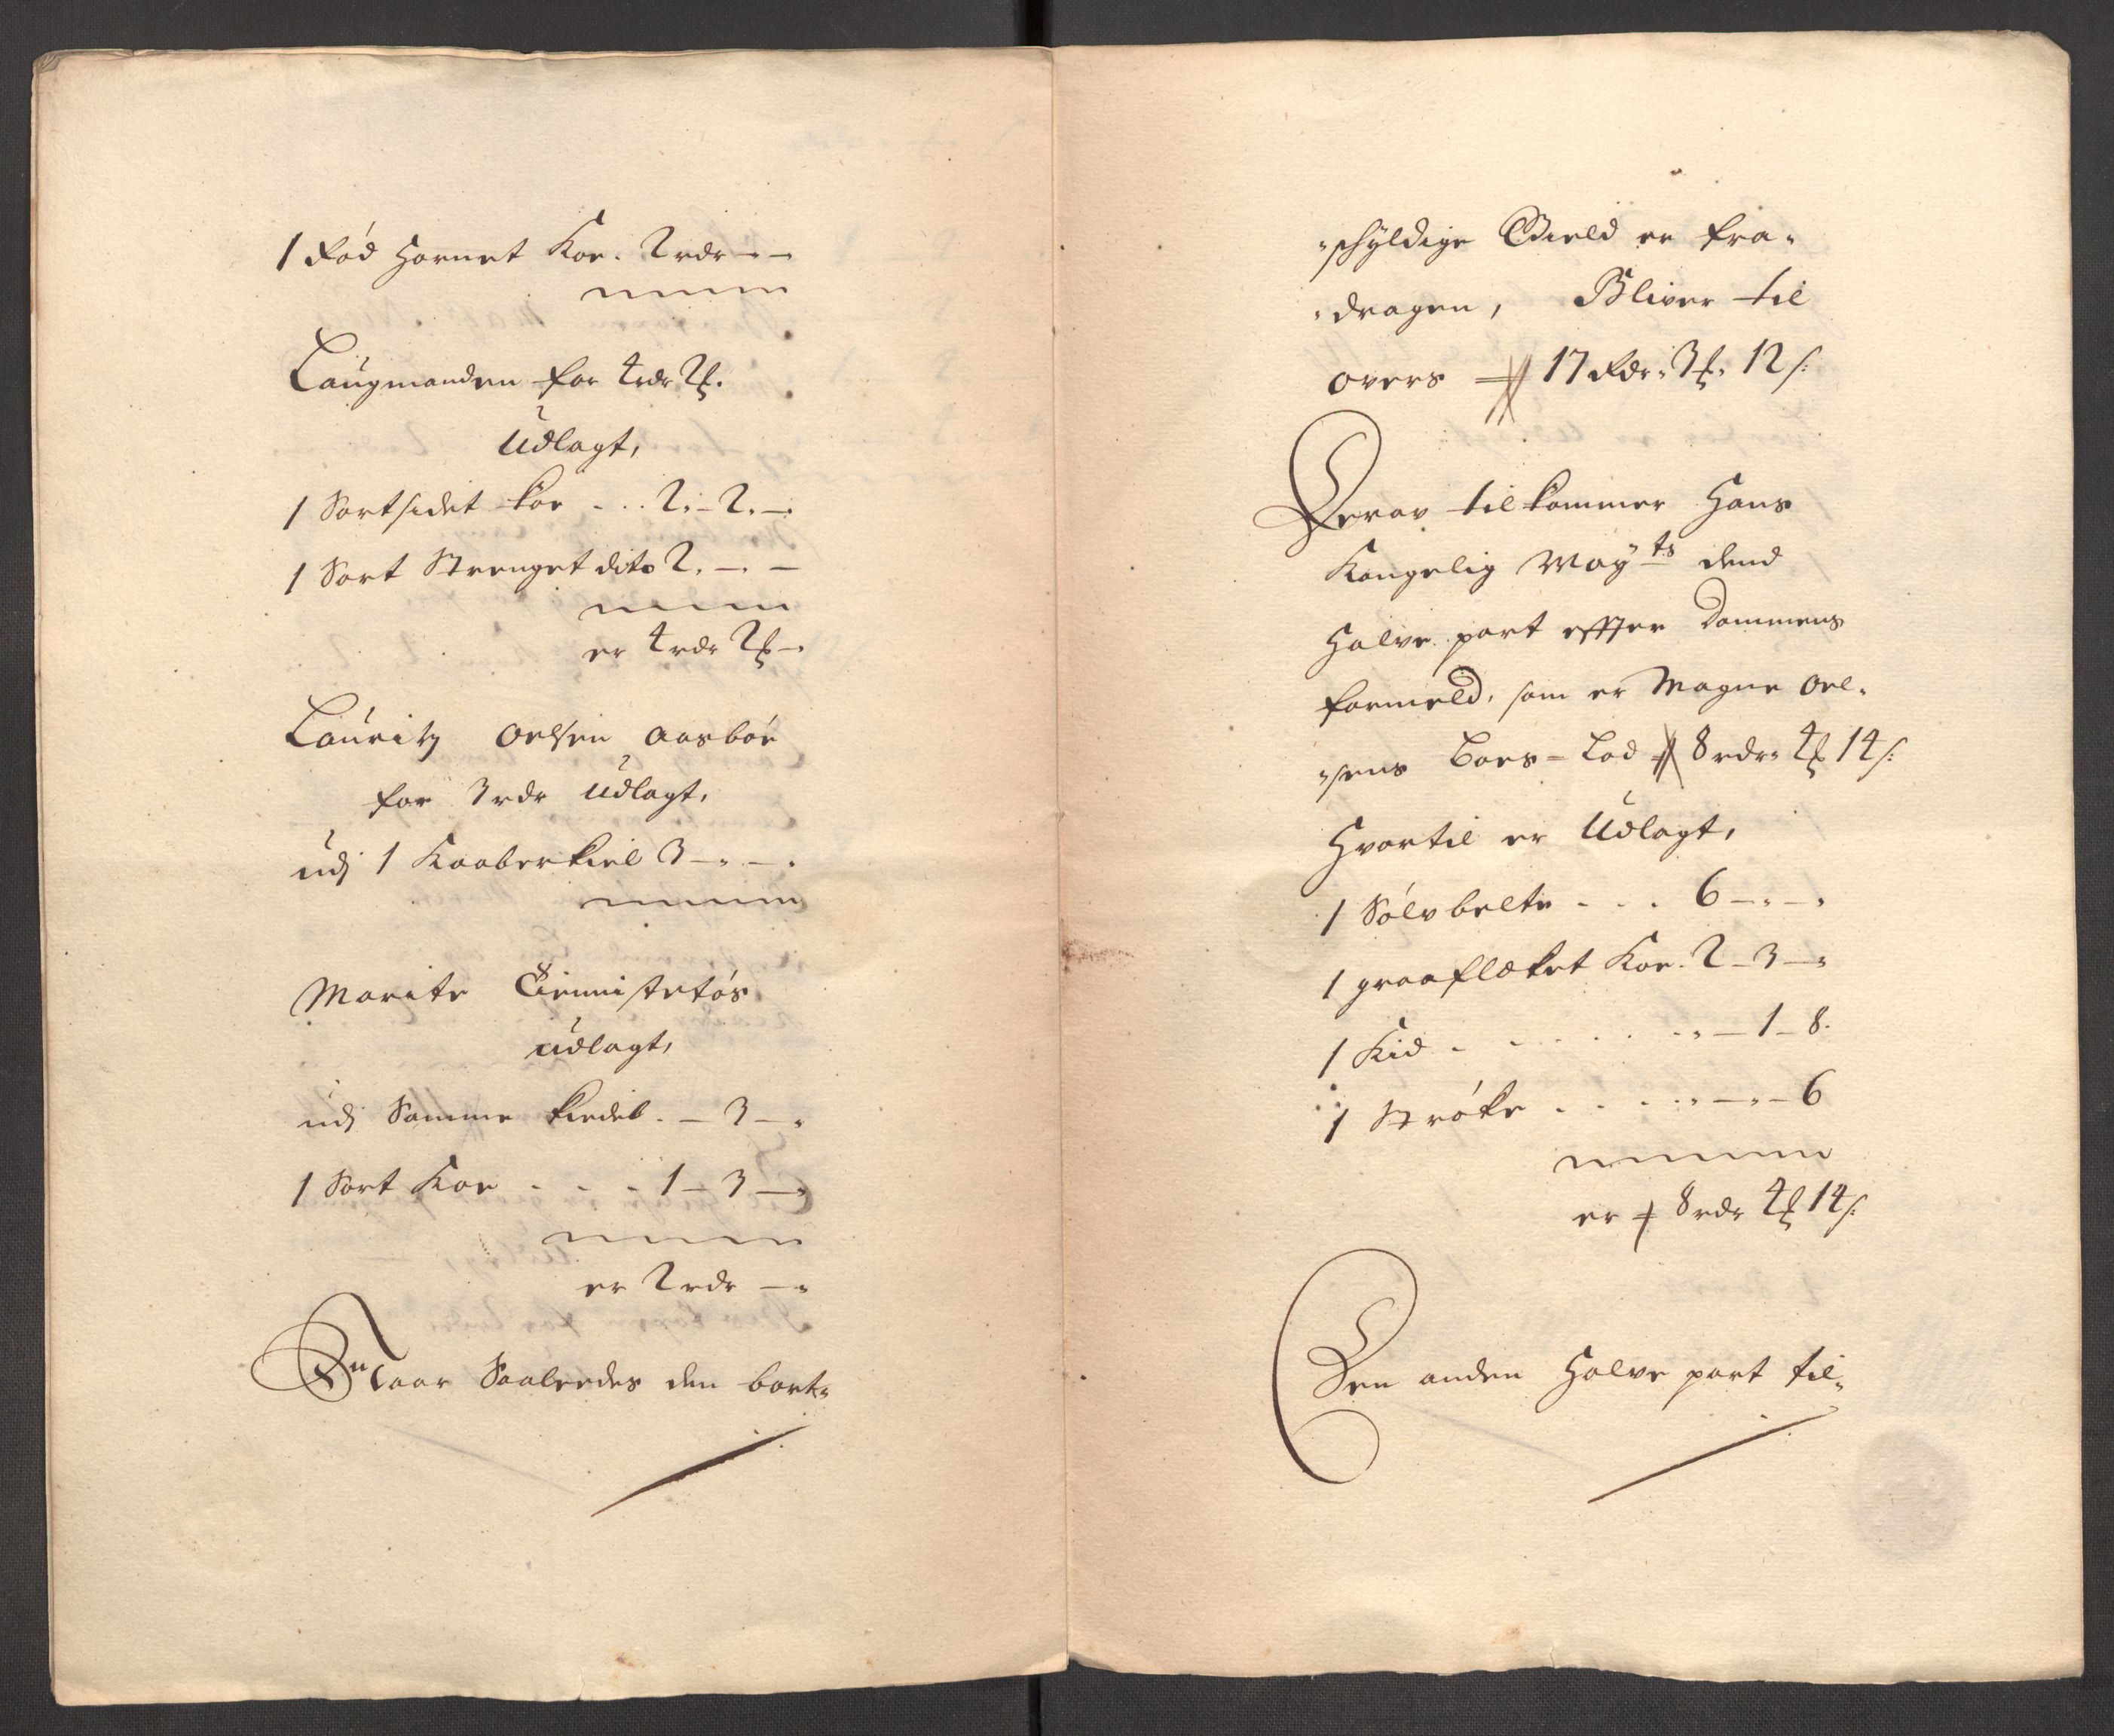 1 Rød Hornet Koe. 2 rdr — —
Laugmanden for 4 rdr 2 ß.
Udlagt,
1 Sortsidet koe - . . 2. – 2. —.
1 Sort Strenget dito 2. —. —
er 4 rdr 2 ß —.
Lauritz Oelsen Aasbøe
for 3 rdr Udlagt,
udj 1 Kaaberkiel 3 —„ —.
Marite Tiennistetøs
udlagt,
udj Samme kiedel. — 3 —„
1 Sort Koe - - - 1 – 3 —„
er 2 rdr —„
Naar Saaledes den bort„
„schyldige Gield er fra„
„dragen, Bliver til
overs 17 Rdr„ 3 ß„ 12 s:
Derav tilkommer Hans
Kongelig Mayts dend
Halve part effter Dommens
formeld, som er Magne Oel„
„sens Boes-Lod 8 rdr„ 4 ß 14 s:
Hvortil er Udlagt,
1 Sølvbelte - . . 6 —„ —„
1 graaflæket Koe. 2 – 3 —„
1 Kid - - - . . . „ — 1 – 8.
1 Strøke . - . . „ —„ – 6
er 8 rdr 4 ß 14 s:
Den anden Halve part til„